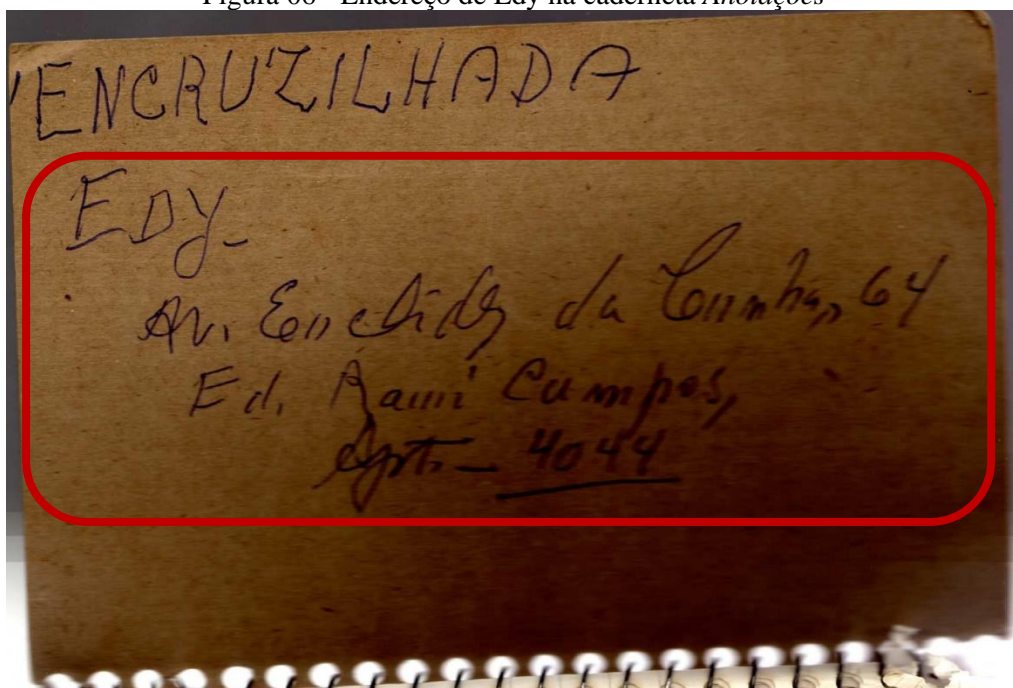 Figura 06 - Endereço de Edy na caderneta Anotações
ENCRUZILHADA
EDY
Av. Euclides da Cunha, 64
Ed. Rauni Campos,
Apt. - 4044